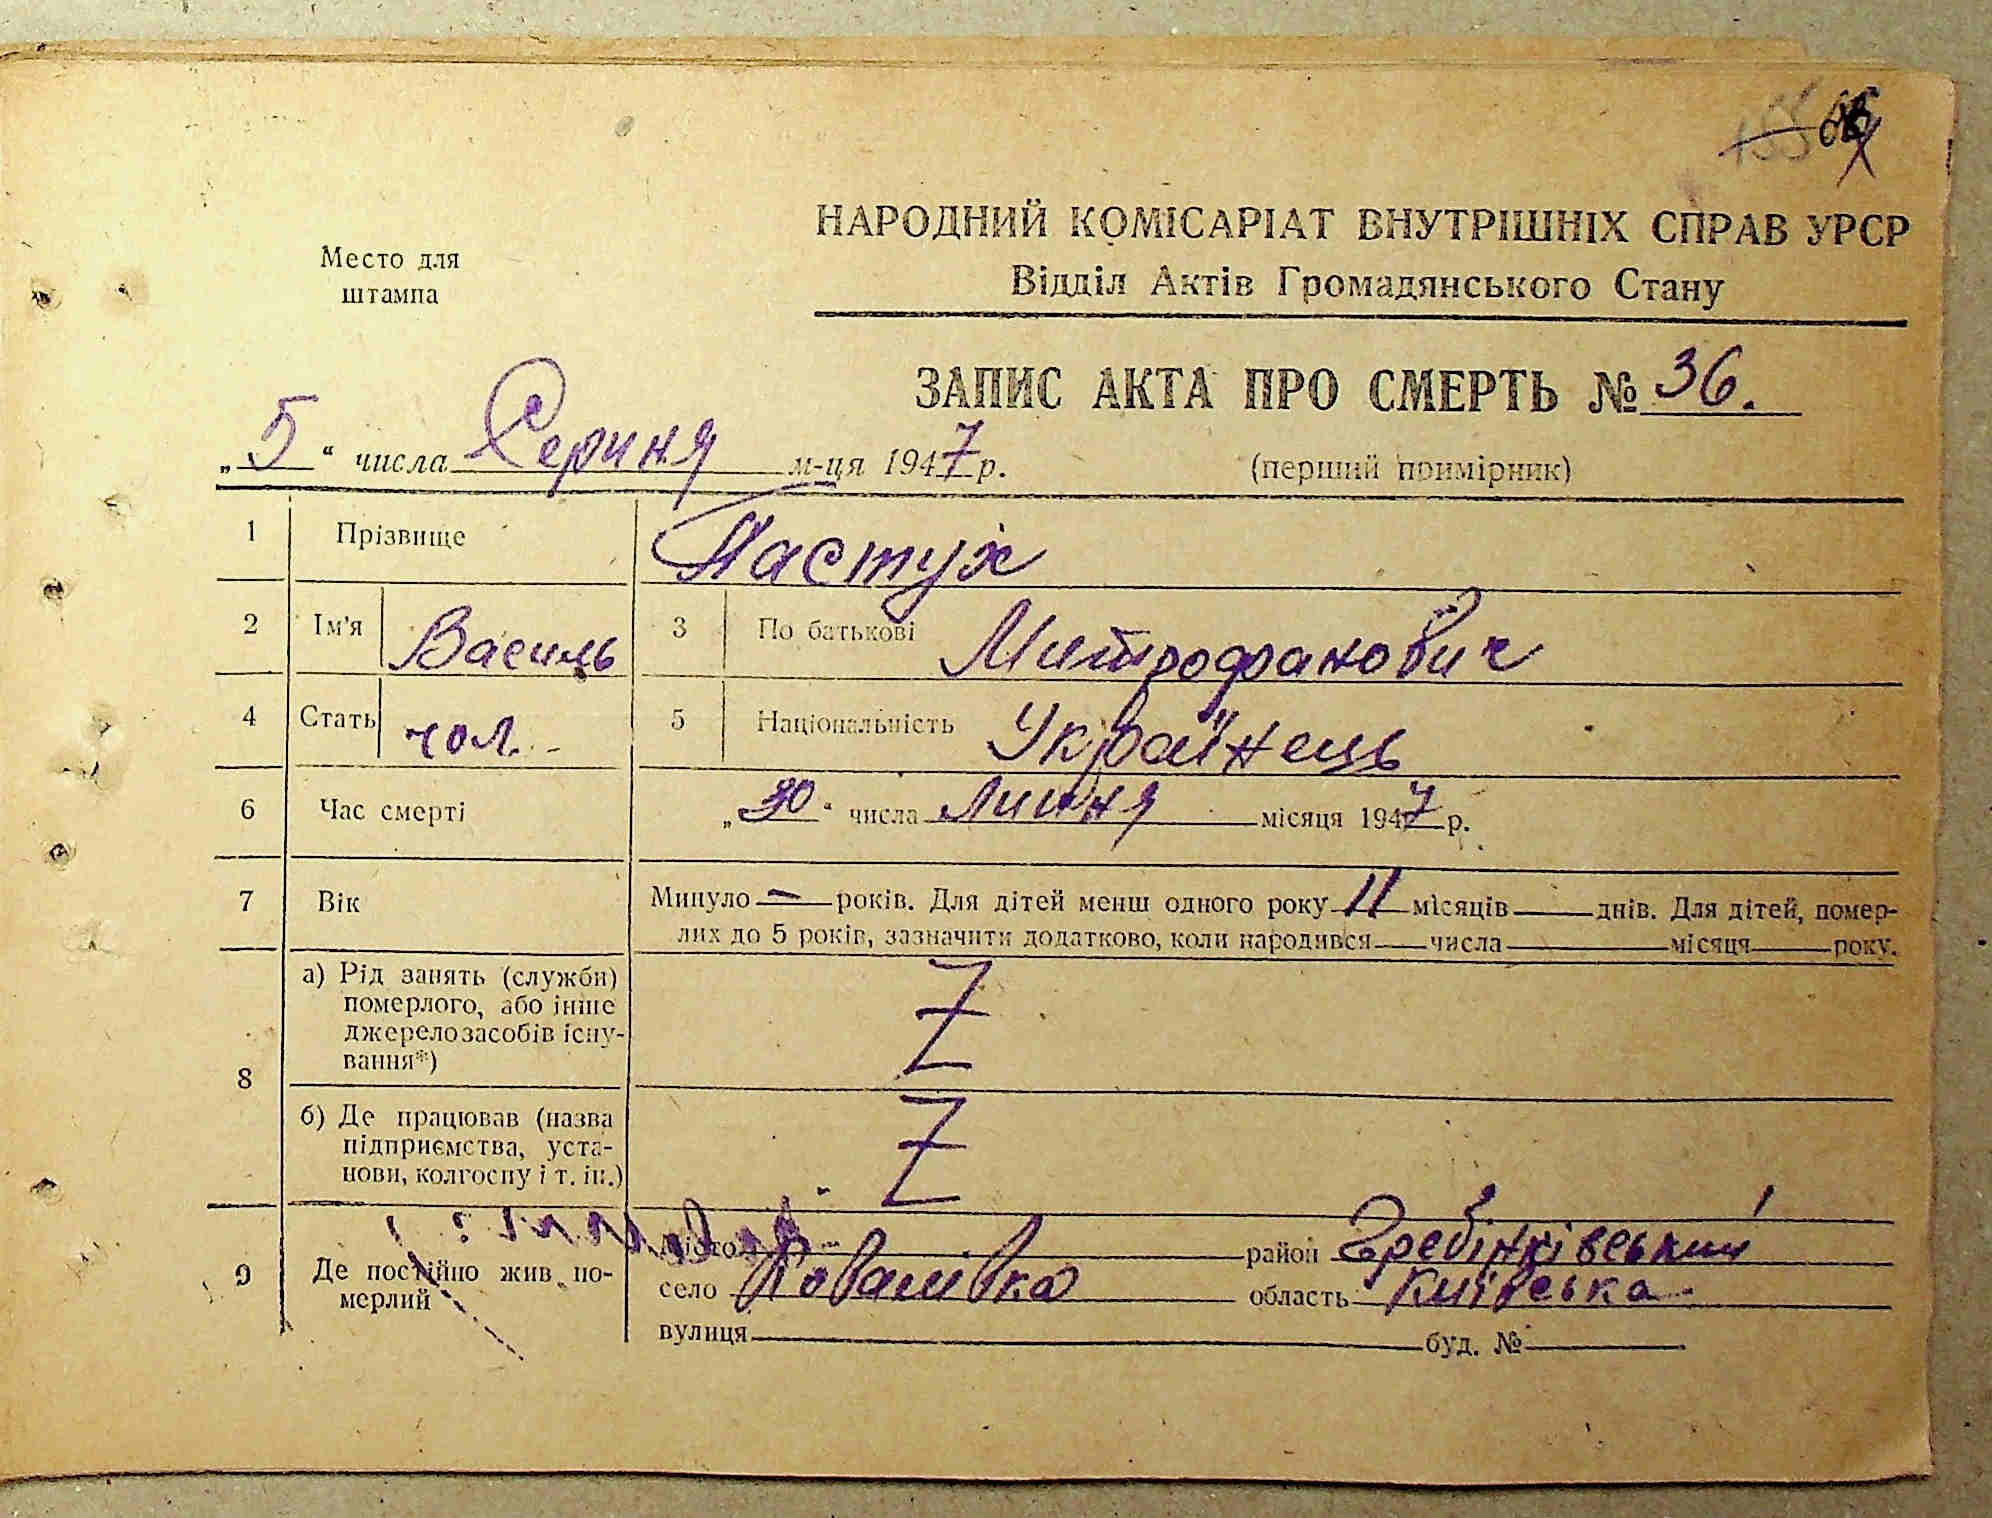 НАРОДНИЙ КОМІСАРІАТ ВНУТРІШНІХ СПРАВ УРСР
Відділ Актів Громадянського Стану
Место для
штампа
ЗАПИС АКТА ПРО СМЕРТЬ № 36.
„5“ числа Серпня м-ця 1947 р. (перший примірник)
1 Прізвище Пастух
2 Ім'я Василь 3 По батькові Митрофанович
4 Стать чол. 5 Національність Українець
6 Час смерті „30“ числа Липня місяця 1947 р.
7 Вік Минуло — років. Для дітей менш одного року 11 місяців днів. Для дітей, помер-
лих до 5 років, зазначити додатково, коли народився числа місяця року.
8 а) Рід занять (служби)
померлого, або інше
джерело засобів існу-
вання*)
Z
б) Де працював (назва
підприємства, уста-
нови, колгоспу і т. ін.)
Z
9 Де постійно жив по-
мерлий
місто район Гребінківський
село Ковалівка область Київська
вулиця буд. №